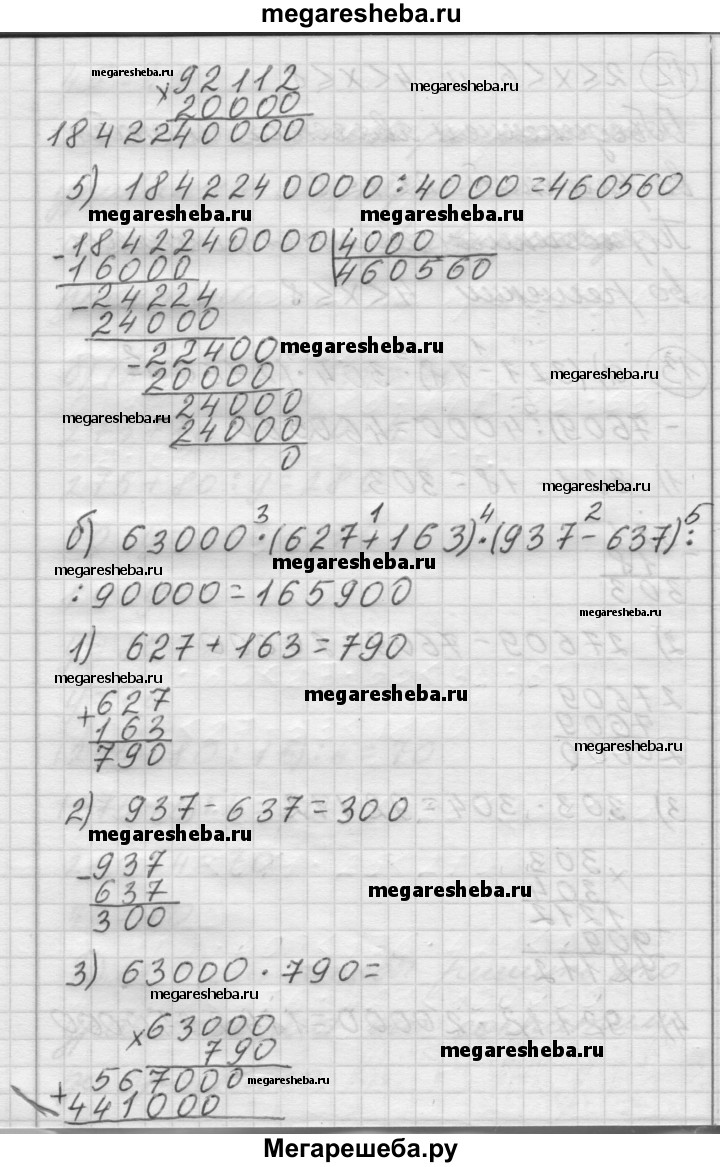 megaresheba.ru
megaresheba.ru
× 92112
megaresheba.ru
20000
1842240000
5) 1842240000:4000=460560
megaresheba.ru
megaresheba.ru
- 1842240000 | 4000
16000
460560
- 24224
24000
- 22400
megaresheba.ru
20000
megaresheba.ru
24000
megaresheba.ru
24000
0
megaresheba.ru
3 1 4 2 5
б) 63000·(627+163)·(937-637):
megaresheba.ru
megaresheba.ru
:90000=165900
megaresheba.ru
1) 627+163=790
megaresheba.ru
+ 627
megaresheba.ru
163
790
megaresheba.ru
2) 937-637=300
megaresheba.ru
- 937
637
megaresheba.ru
300
3) 63000·790=
megaresheba.ru
× 63000
790
megaresheba.ru
567000
megaresheba.ru
+ 441000
Мегарешеба.ру